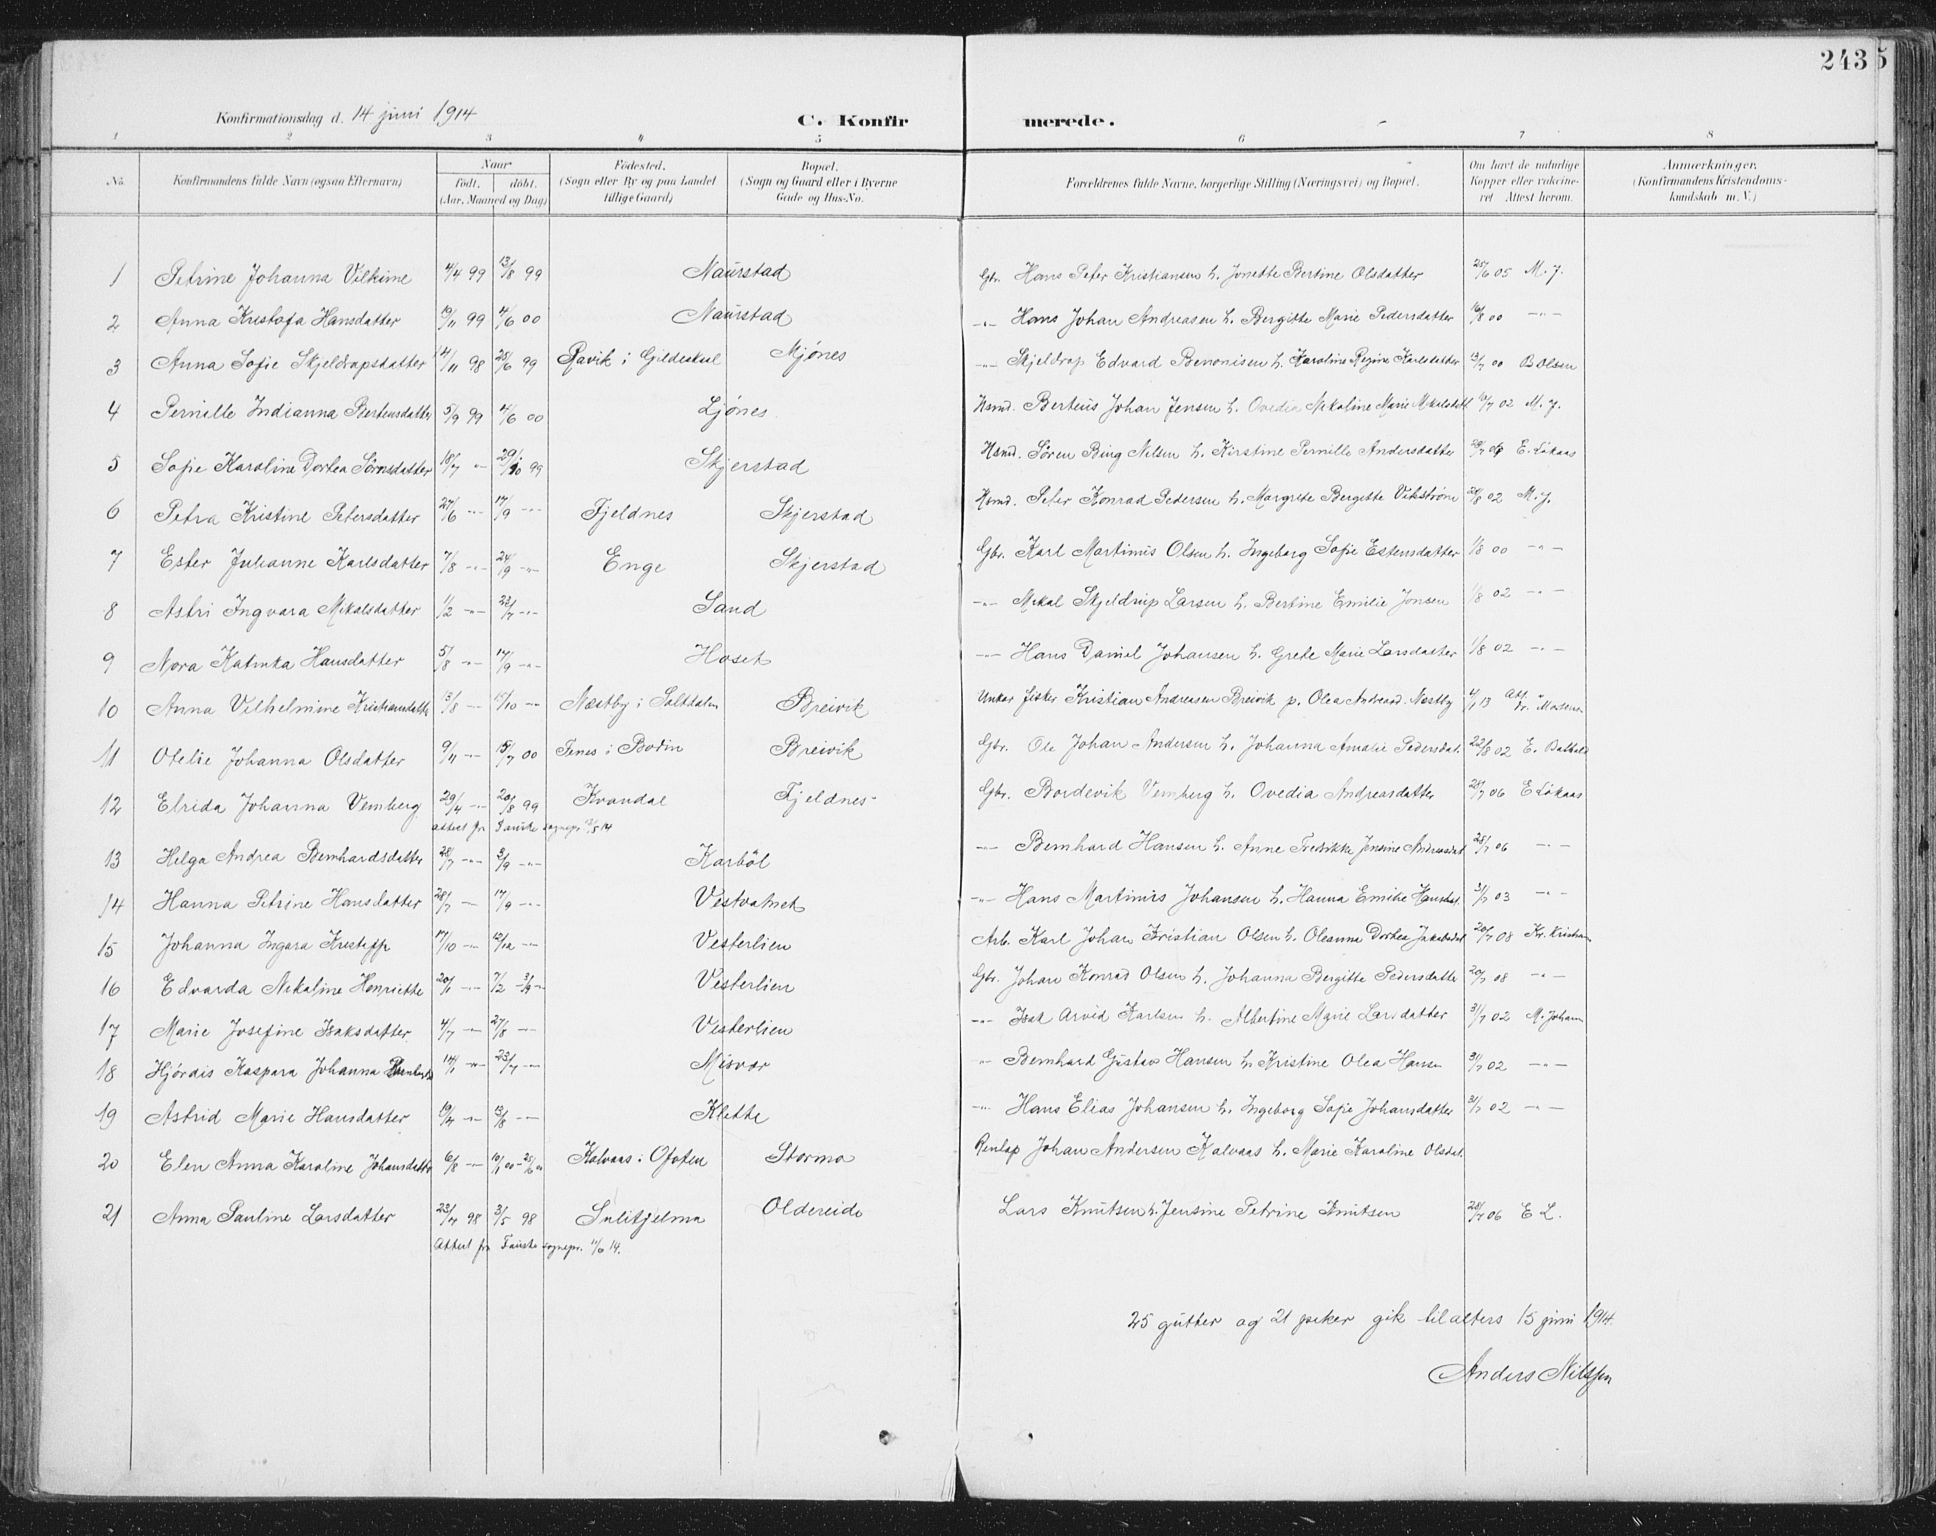 243
5
Konfirmationsdag d. 14 juni 1914
C. Konfirmerede.
1 2 3 4 5 6 7 8
No. Konfirmandens fulde Navn (ogsaa Efternavn) Naar født. døbt. (Aar, Maaned og Dag) Födested. (Sogn eller By og paa Landet tillige Gaard) Bopæl. (Sogn og Gaard eller i Byerne Gade og Hus-No. Forældrenes fulde Navne, borgerlige Stilling (Næringsvei) og Bopæl. Om havt de naturlige Kopper eller vakcineret. Attest herom. Anmærkninger. (Konfirmandens Kristendomskundskab m. V.)
1 Petrine Johanna Vilkine 4/4 99 13/8 99 Naurstad Gbr. Hans Peter Kristiansen h. Jonette Bertine Olsdatter 25/6 05 M. J.
2 Anna Kristofa Hansdatter 19/11 99 4/6 00 Naurstad -"- Hans Johan Andreasen h. Bergitte Marie Pedersdatter 16/8 00 -"-
3 Anna Sofie Skjeldrapsdatter 14/11 98 25/6 99 Ravik i Gildeskal Mjönes -"- Skjeldrop Edvard Benonisen h. Karoline Regine Karlsdatter 13/7 00 B Olsen
4 Pernille Indianna Bertensdatte 5/9 99 4/6 00 Ljönes Hsmd. Berteus Johan Jensen h. Ovedia Nikoline Marie 02 M. J.
5 Sofie Karoline Dortea Sörnsdatter 18/7 -"- 29/10 99 Skjerstad Hsmd. Sören Bing Nilsen h. Kirstine Pernille Andersdatter E. Lökaas
6 Petra Kristine Petersdatter 27/6 -"- 17/9 -"- Fjeldnes Skjerstad Hsmd. Peter Konrad Pedersen h. Margrete Bergitte Vikström 02 M. J.
7 Ester Julianne Karlsdatter 7/8 -"- 24/9 -"- Enge Skjerstad Gbr. Karl Martinus Olsen h. Ingeborg Sofie Estensdatter 1/8 00 -"-
8 Astri Ingvara Mikalsdatter 1/2 -"- 23/7 -"- Sand -"- Mikal Skjeldrup Larsen h. Bertine Emilie Jonsen 1/8 02 -"-
9 Nora Katinka Hansdatter 5/8 -"- 17/9 -"- Hoset -"- Hans Daniel Johansen h. Grete Marie Larsdatter 1/8 02 -"-
10 Anna Vilhelmine Kristiansdatte 13/8 -"- 15/10 -"- Næstby i Saltdalen Breivik Unkar fisker Kristian Andreasen Breivik p. Olea Næstby 4/1 13 Att.
11 Otelie Johanna Olsdatter 9/11 -"- 15/7 00 Fenes i Bodin Breivik Gbr. Ole Johan Andersen h. Johanna Amalie Pedersdat. 22/8 02 E.
12 Elrida Johanna Vemberg 29/4 -"- 20/8 99 Kvandal Fjeldnes Gbr. Bordevik Vemberg h. Ovedia Andreasdatter 28/7 06 E Lökaas
attest fr. Fauske sognepr. 14
13 Helga Andrea Bernhardsdatter 28/7 -"- 3/9 -"- Karböl -"- Bernhard Hansen h. Anne Fredrikke Jensine Andreasdat 28/7 06 -"-
14 Hanna Petrine Hansdatter 28/7 -"- 17/9 -"- Vestvatnet -"- Hans Martinus Johansen h. Hanna Emilie Hansdat. 31/7 03 -"-
15 Johanna Ingara 17/10 -"- 12/12 -"- Vesterlien Arb. Karl Johan Kristian Olsen h. Oleanna Dortea Jakobsdat 20/7 08 Kr. Kristian
16 Edvarda Nikoline Henriette 20/1 -"- 7/2 -"- Vesterlien Gbr. Johan Konrad Olsen h. Johanna Bergitte Pedersdatte 20/7 08 -"-
17 Marie Josefine Isaksdatter 4/7 -"- 27/8 -"- Vesterlien -"- Isak Arvid Karlsen h. Albertine Marie Larsdatter 31/7 02 M. Johan
18 Hjördis Kaspara Johanna 14/1 -"- 23/4 -"- Misvær -"- Bernhard Gustav Hansen h. Kristine Olea Hansen 31/7 02 -"-
19 Astrid Marie Hansdatter 19/4 -"- 13/8 -"- Klette -"- Hans Elias Johansen h. Ingeborg Sofie Johansdatter 31/7 02 -"-
20 Elen Anna Karoline Johansdatte 6/8 -"- 10/1 00 - 25/6 00 Kalvaas i Ofoten Storma Renlap Johan Andersen Kalvaas h. Marie Karoline Olsdat.
21 Anna Pauline Larsdatter 23/4 98 3/5 98 Sulitjelma Oldereide Lars Knutsen h. Jensine Petrine Knutsen 28/7 06 E L.
Attest fr. Fauske sognepr. 11/6 14.
25 gutter og 21 piker gik til alters 15 juni 1914.
Anders Nilssen